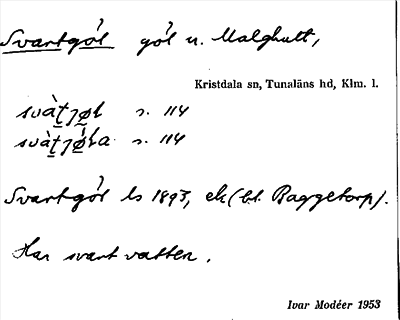 Svartgöl göl n. Malghult,
Kristdala sn, Tunaläns hd, Klm. l.
svàt̠ȷø̠l s. 114
svàt̠ȷø̠la s. 114
Svartgöl ls 1893, ek (bl. Baggetorp).
Har svart vatten.
Ivar Modéer 1953